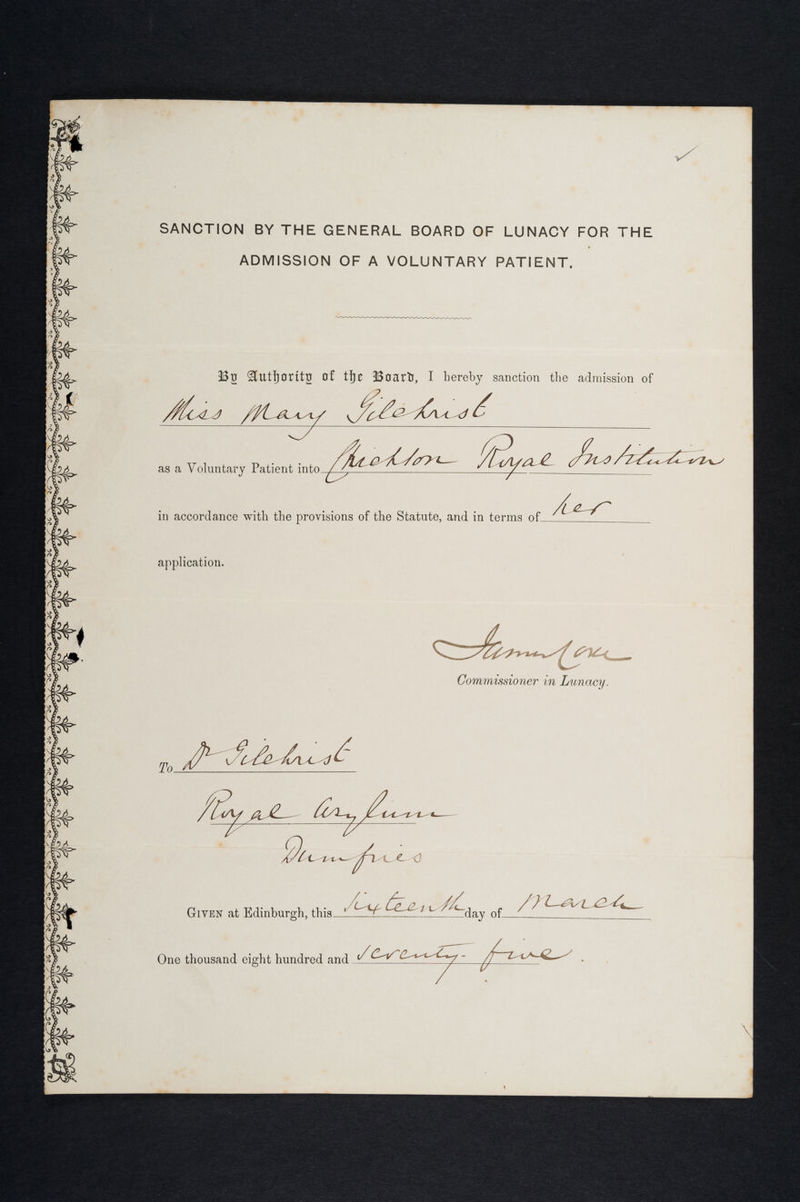 SANCTION BY THE GENERAL BOARD OF LUNACY FOR THE
ADMISSION OF A VOLUNTARY PATIENT.
By Authority of the Board, I hereby sanction the admission of
Miss Mary Gilchrist
as a Voluntary Patient into Crichton Royal Institution
in accordance with the provisions of the Statute, and in terms of her
application.
James Coxe
Commissioner in Lunacy.
To Dr Gilchrist
Royal Asylum
Dumfries
GIVEN at Edinburgh, this sixteenth day of March
One thousand eight hundred and seventy-five.